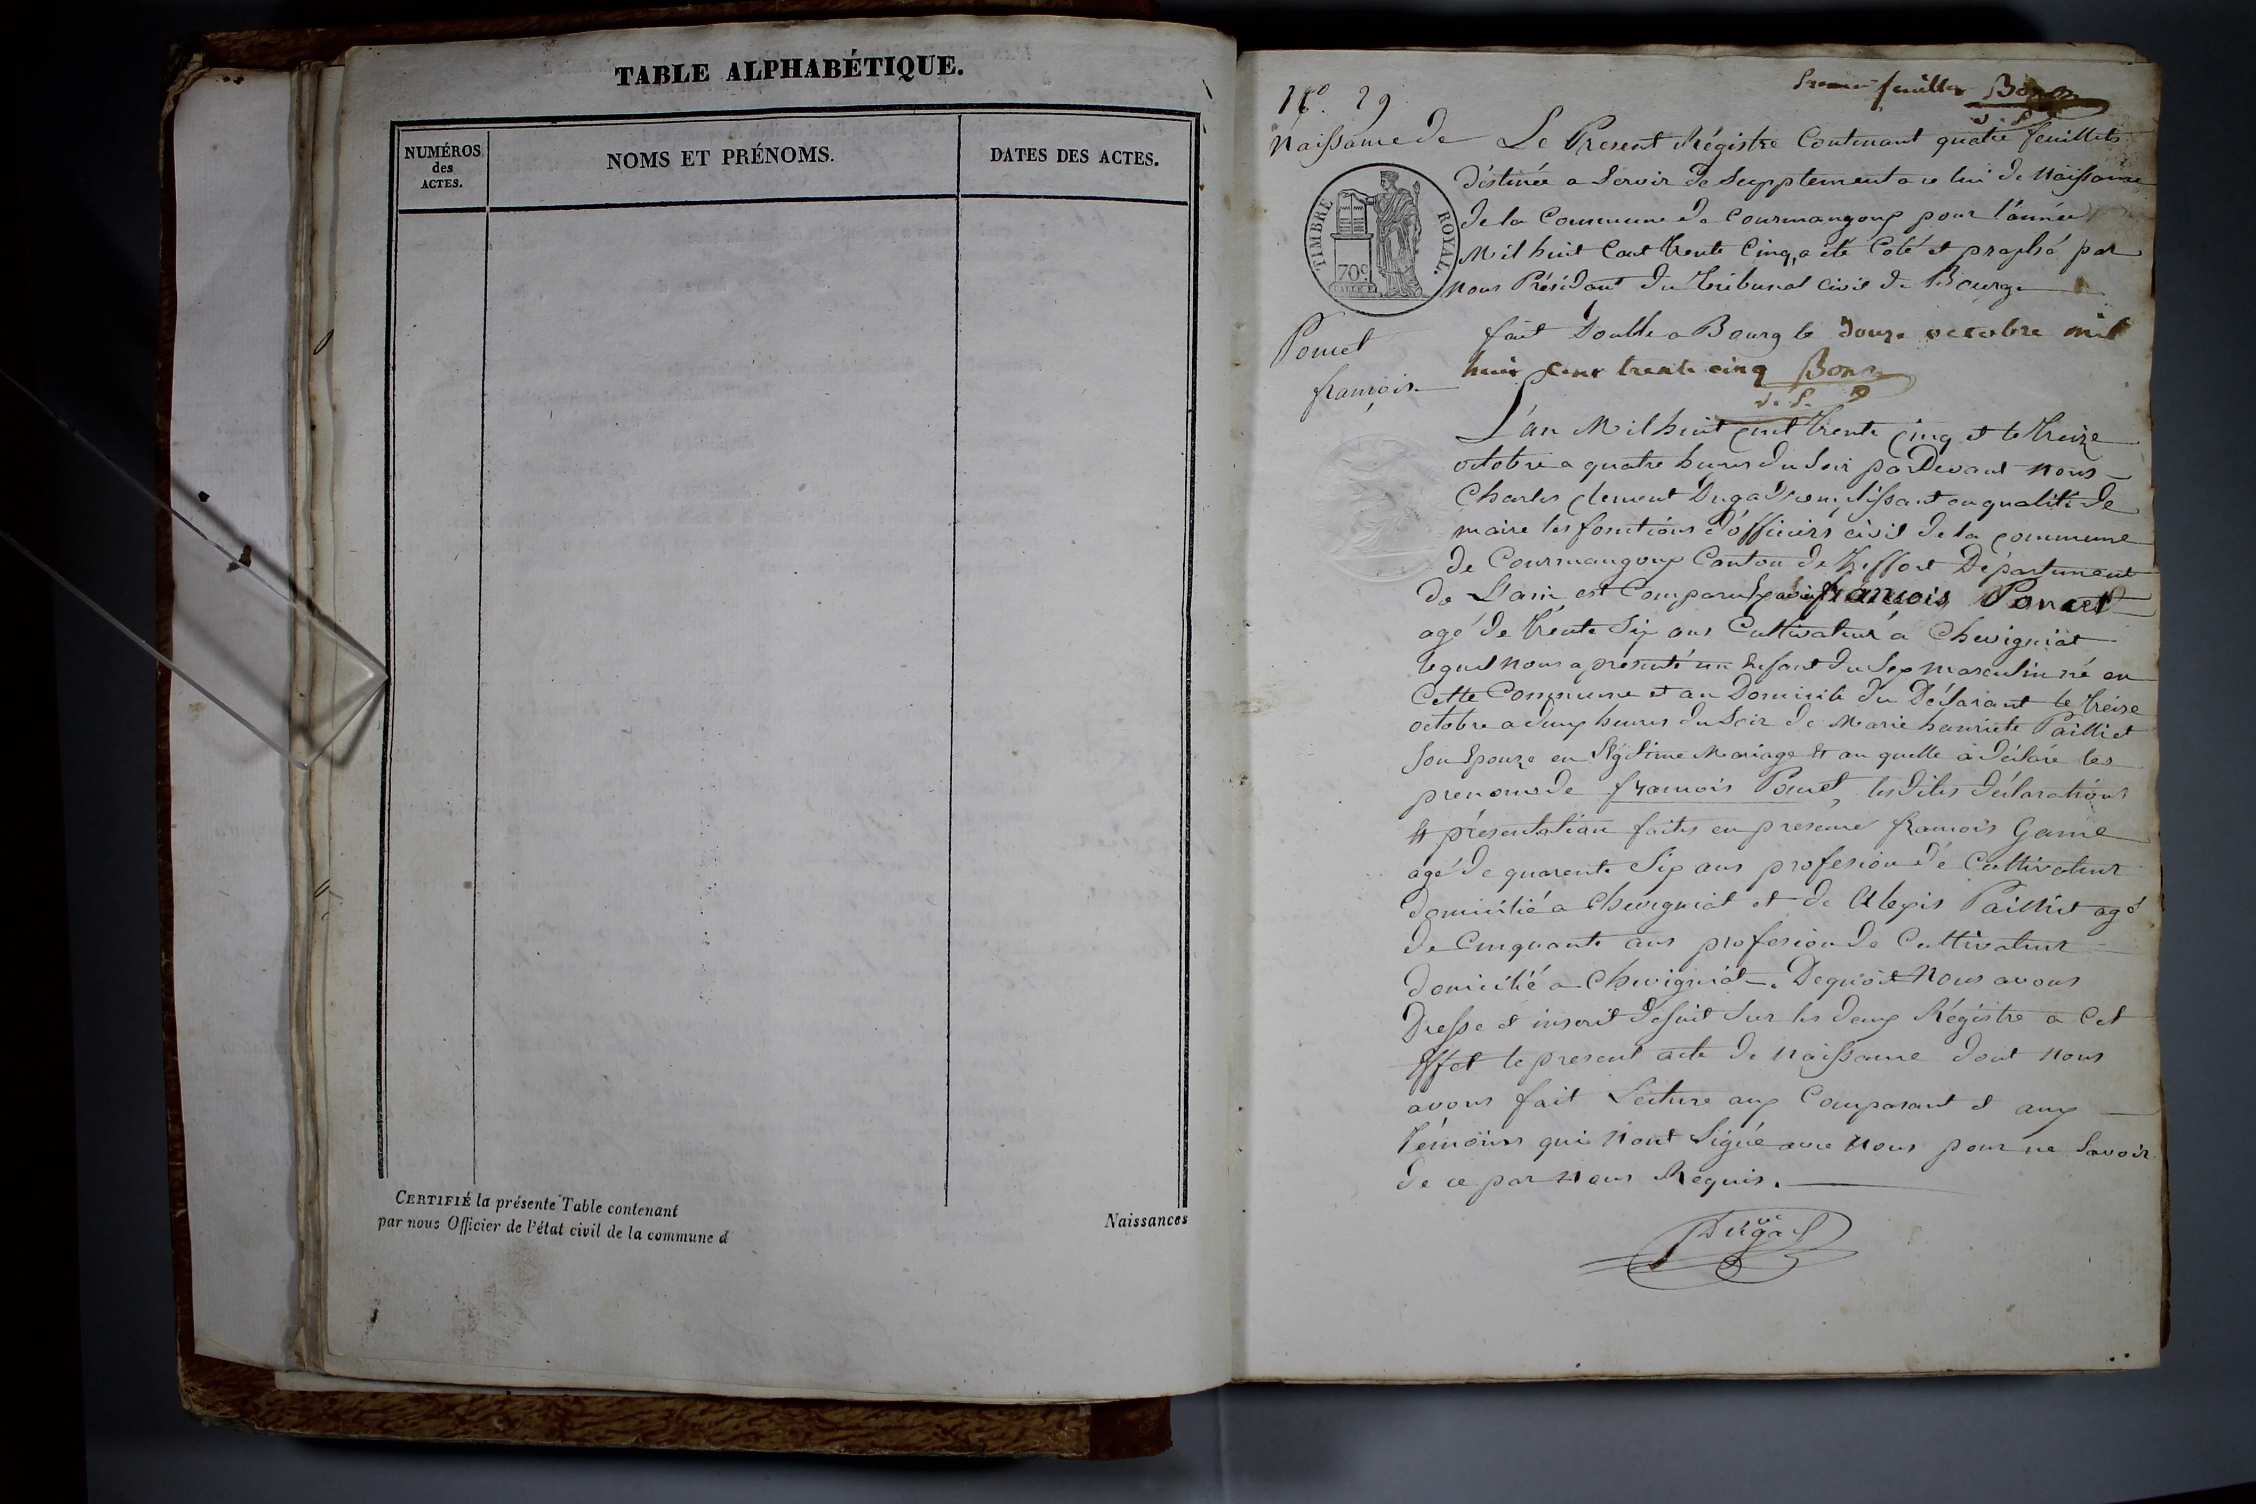 TABLE ALPHABÉTIQUE.
NUMÉROS
des
ACTES.
NOMS ET PRÉNOMS.
DATES DES ACTES.
CERTIFIÉ la présente Table contenant
Naissances
par nous Officier de l'état civil de la commune d
feuillet
N.o 29
Naissance de
TIMBRE ROYAL.
70c
Poncet
françois
Le Présent Régistre Contenant quatre feuillets
déstinée a Servir de Supplement a ce lui de Naissance
de la Commune de Courmangoux pour l'année
Mil huit Cent trente Cinq, a été Coté et praphé par
nous Président du Tribunal Civil de Bourg
fait Double a Bourg le douze octobre mil
huit cent trente cinq
L'an Mil huit Cent trente Cinq et le treize
octobre a quatre heures du Soir par Devant nous
Charles Clement Dugad remplissant en qualité de
maire les fonctions d'officiers civil de la commune
de Courmangoux Canton de Treffort Département
De L'ain est Comparu françois Poncet
agé de trente Six ans Cultivateur a Chevigniat
lequel nous a présenté un Enfant du Sex masculin né en
Cette Commune et au Domicile du Déclarant le treize
octobre a deux heures du Soir de Marie henriete Pailliet
Son Epouze en légitime Mariage Et au quelle a déclaré les
prenoms de françois Poncet, les dites déclarations
Et présentation faites en presence françois Game
agé de quarente Six ans profesion de Cultivateur
domicilié a Chevigniat et de Alexis Pailliet agé
de Cinquante ans profesion de Cultivateur
domicilié a Chevigniat. De quoi Nous avons
Dresse et inscrit de suit Sur les deux Régistre a Cet
Effet le present acte de Naissance dont nous
avons fait Lecture aux Comparant et aux
témoins qui N'ont Signé avec Nous pour ne Savoir
de ce par Nous Requis.
Dugad